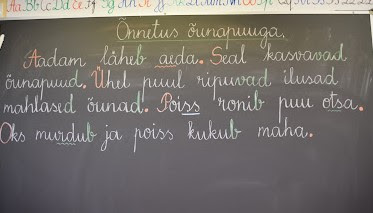 Õnnetus õunapuuga.
Aadam läheb aeda. Seal kasvavad
õunapuud. Ühel puul ripuvad ilusad
mahlased õunad. Poiss ronib puu otsa.
Oks murdub ja poiss kukub maha.